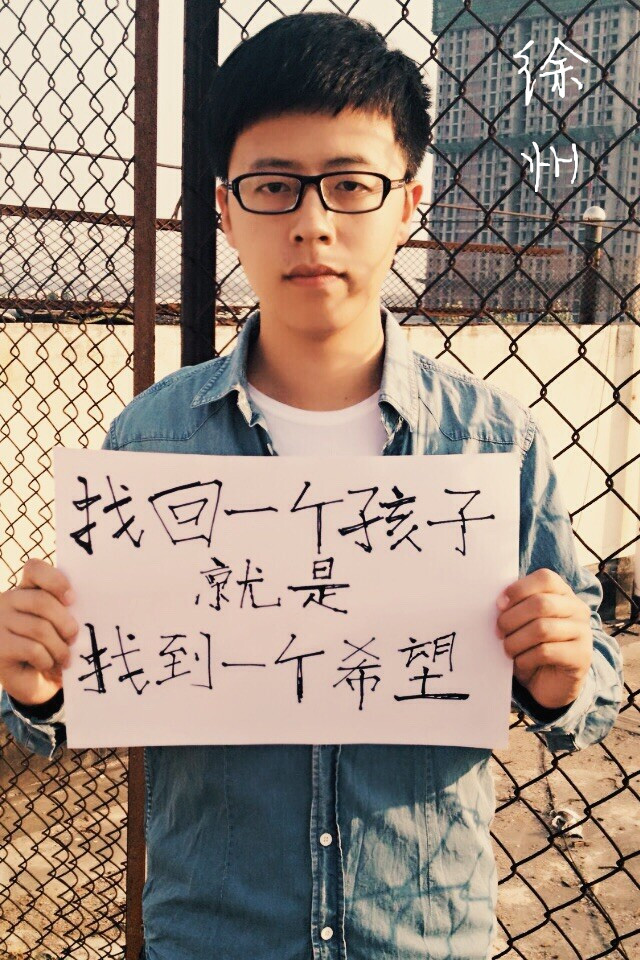 徐
州
找回一个孩子
就是
找到一个希望